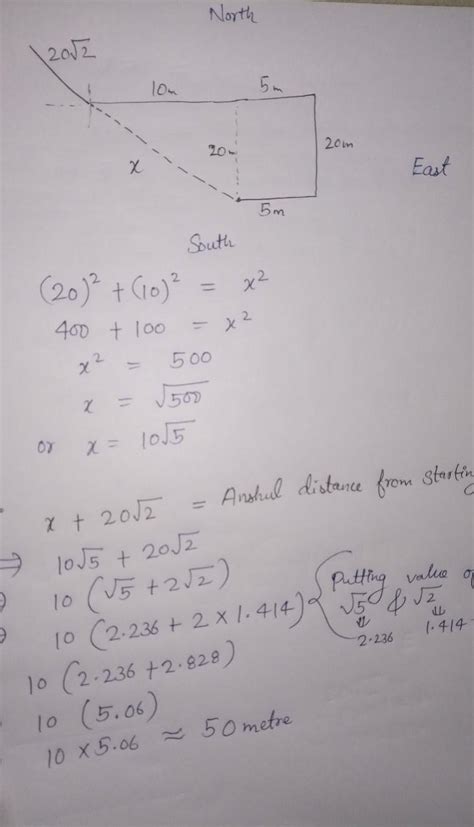 North
20√2
10m
5m
20m
20m
x
East
5m
South
(20)² + (10)² = x²
400 + 100 = x²
x² = 500
x = √500
or x = 10√5
x + 20√2 = Anshul distance from starting
⇒ 10√5 + 20√2
10 (√5 + 2√2)
10 (2.236 + 2 × 1.414) { Putting value
√5 & √2
⇓ ⇓
2.236 1.414
10 (2.236 + 2.828)
10 (5.06)
10 × 5.06 ≈ 50 metre